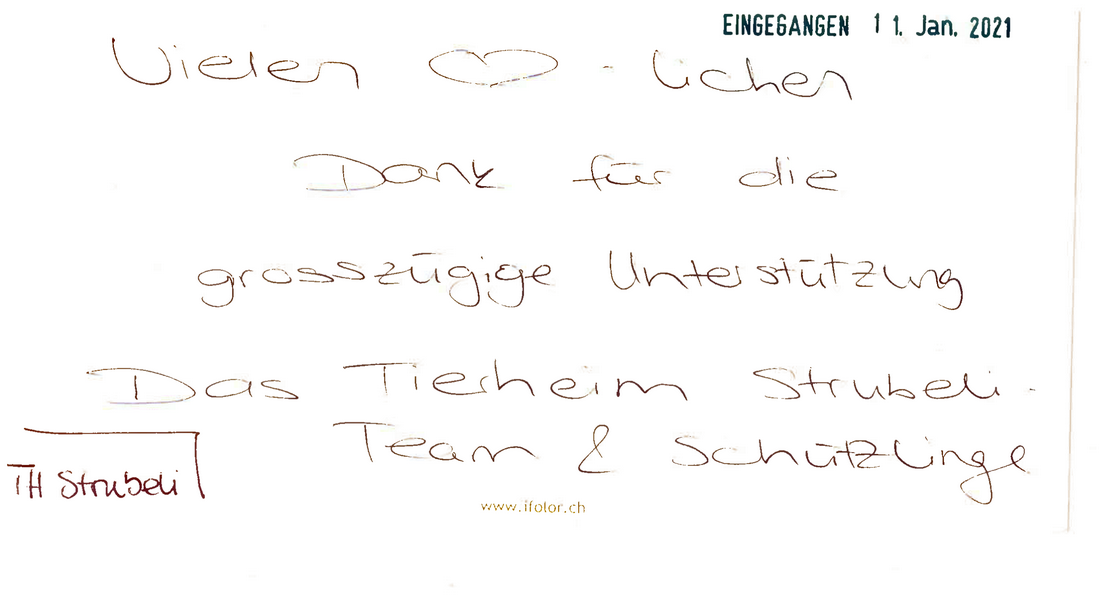 EINGEGANGEN 11. Jan. 2021
Vielen ♡-lichen
Dank für die
grosszügige Unterstützung
Das Tierheim Strubeli-
Team & Schützlinge
TH Strubeli
www.ifolor.ch